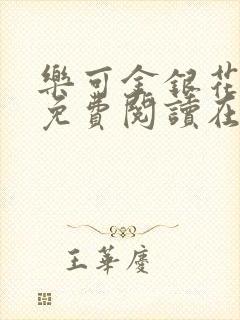 樂可金銀花
免費閱讀在
王華慶